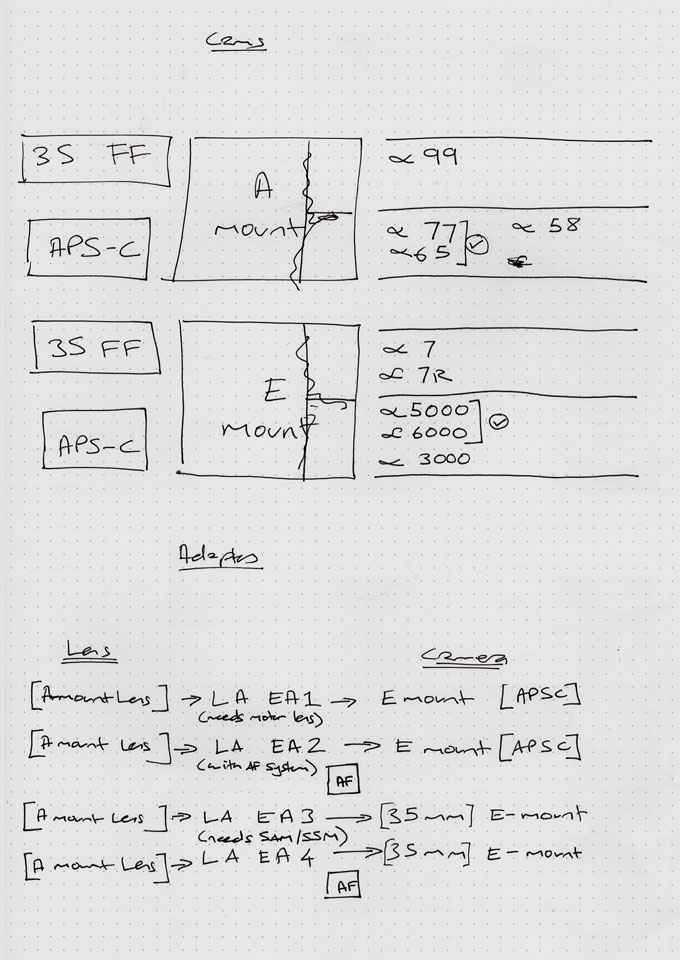 Cams
35 FF
A
mount
APS-C
α 99
α 77
α 65
α 58
35 FF
E
mount
APS-C
α 7
α 7R
α 5000
α 6000
α 3000
Adapters
Lens
Camera
[Amount Lens] → LA EA1 → E mount [APSC]
(needs motor lens)
[A mount Lens] → LA EA2 → E mount [APSC]
(with AF system)
AF
[A mount Lens] → LA EA3 → [35mm] E-mount
(needs SAM/SSM)
[A mount Lens] → LA EA4 → [35mm] E-mount
AF